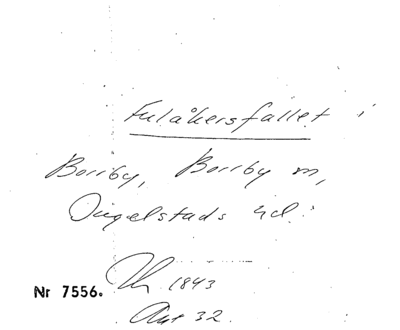 Fulåkersfallet i
Borrby, Borrby sn,
Ingelstads hd.
Nr 7556. Th 1843
Akt 32.